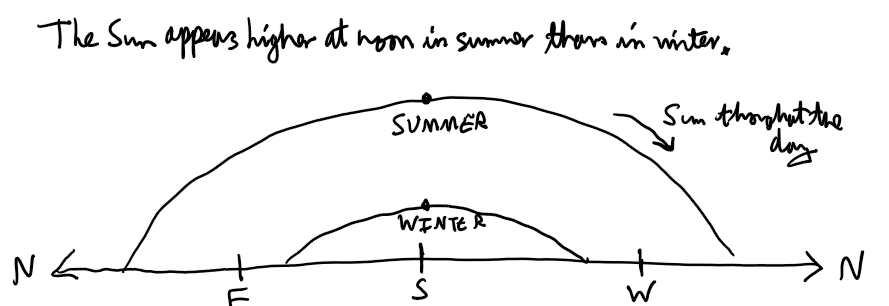 The Sun appears higher at noon in summer than in winter.
SUMMER
Sun throughout the
day
WINTER
N
N
E
S
W